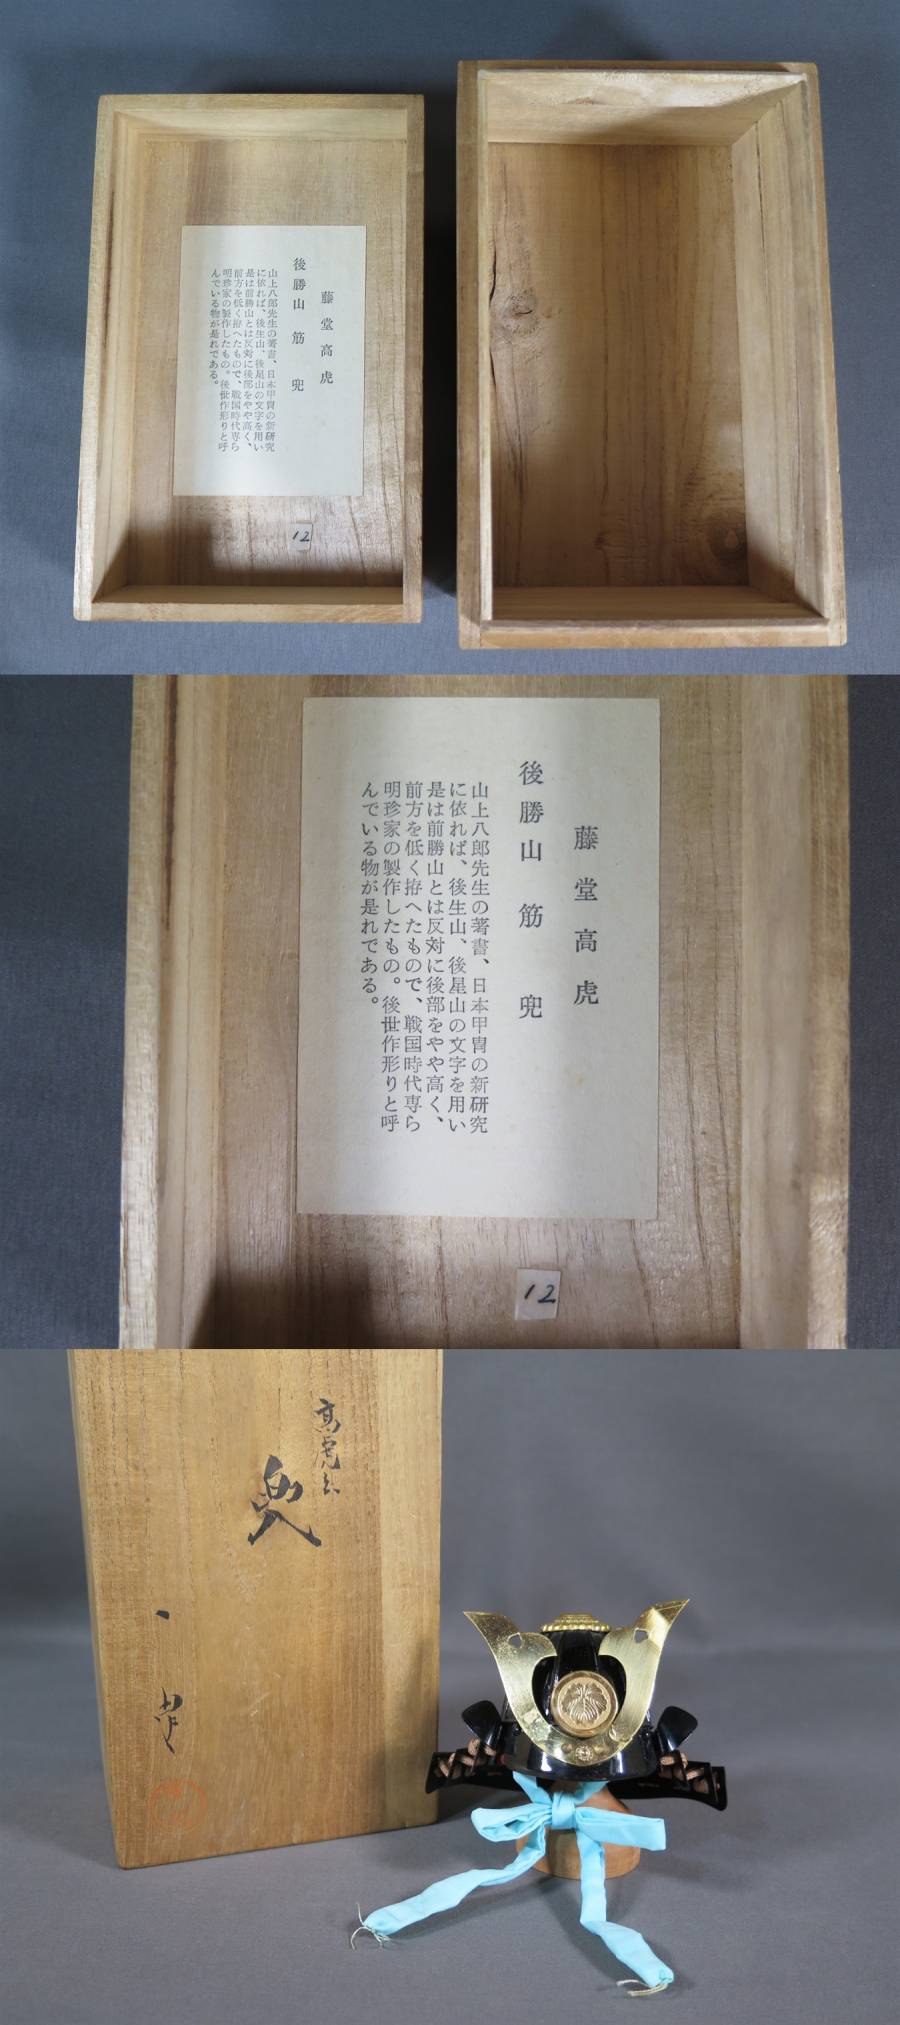 藤堂高虎
後勝山筋兜
山上八郎先生の著書、日本甲冑の新研究
に依れば、後生山、後星山の文字を用い
是は前勝山とは反対に後部をやや高く、
前方を低く拵へたもので、戦国時代専ら
明珍家の製作したもの。後世作形りと呼
んでいる物が是れである。
12
藤堂高虎
後勝山筋兜
山上八郎先生の著書、日本甲冑の新研究
に依れば、後生山、後星山の文字を用い
是は前勝山とは反対に後部をやや高く、
前方を低く拵へたもので、戦国時代専ら
明珍家の製作したもの。後世作形りと呼
んでいる物が是れである。
12
高虎公
兜